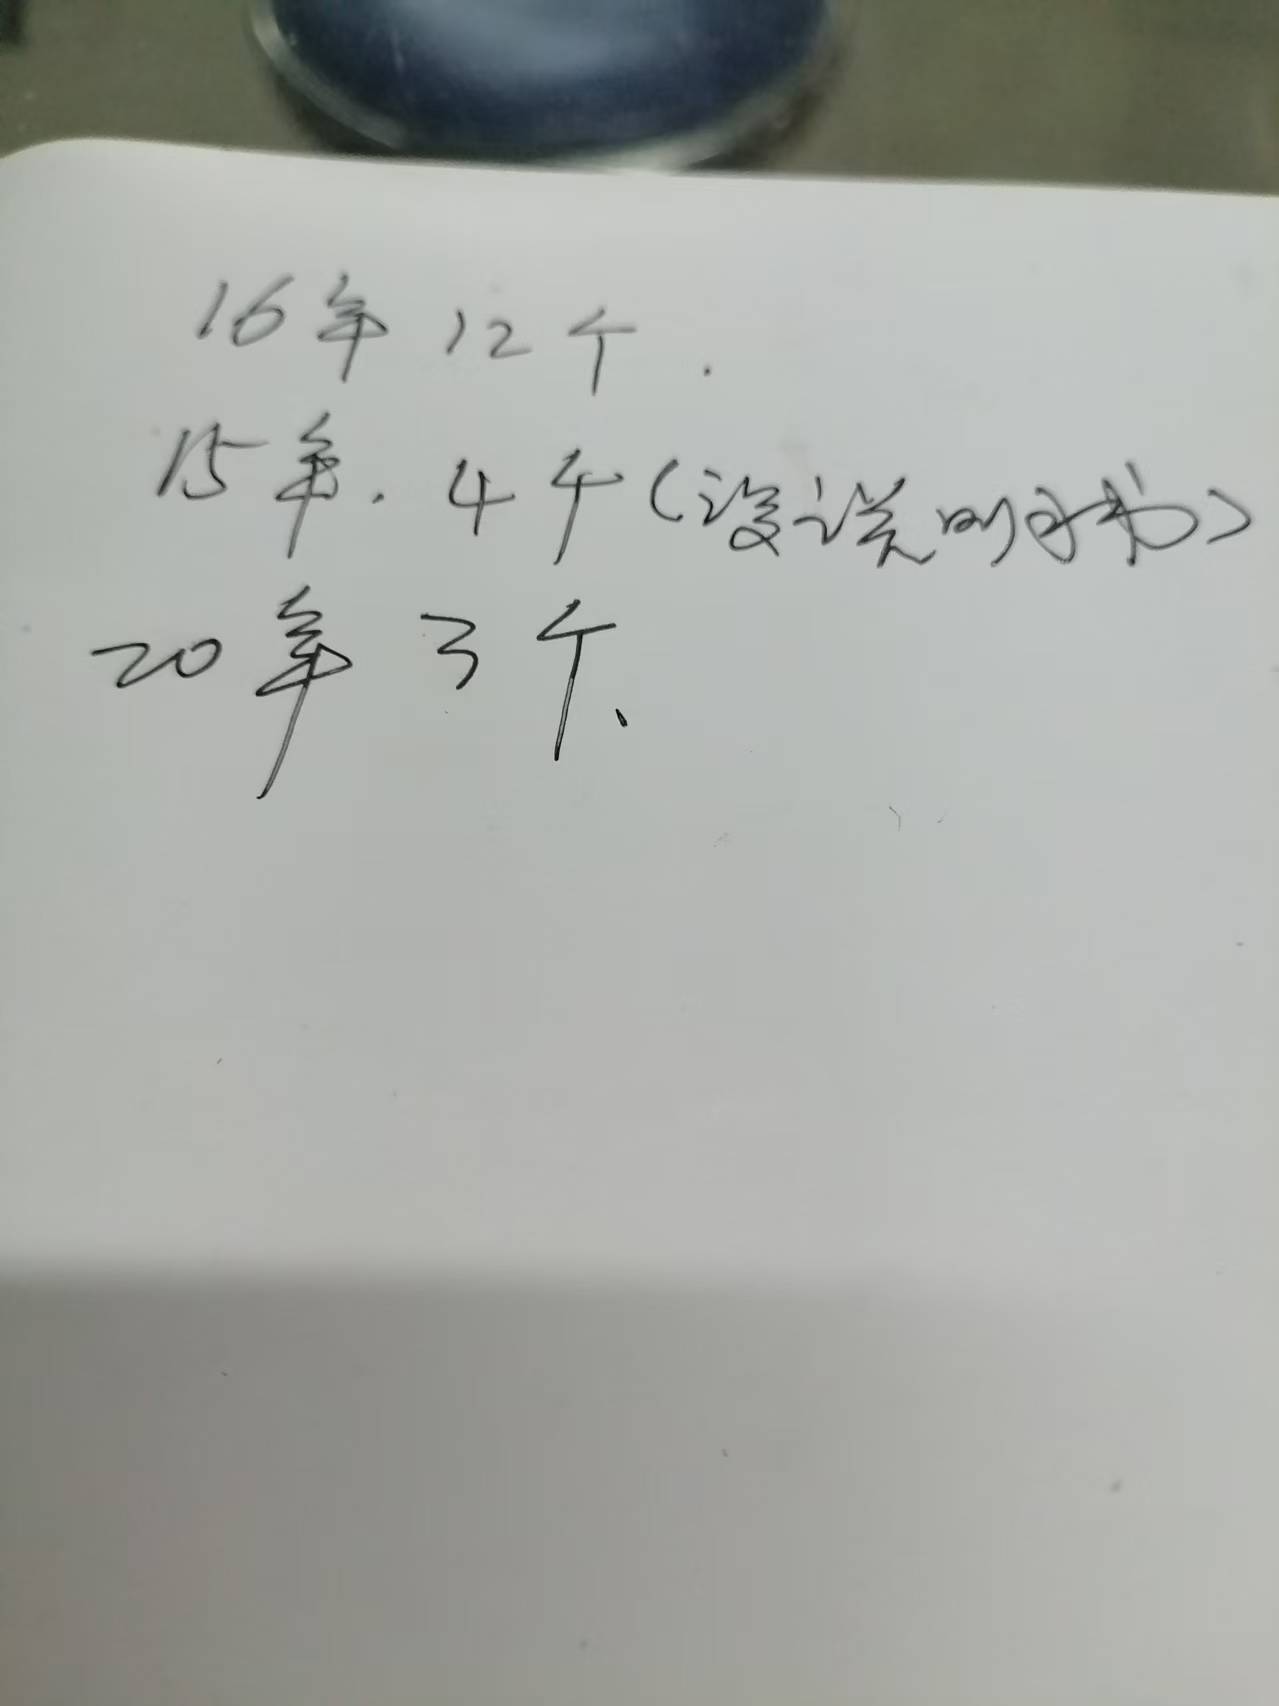 16年 12个.
15年. 4个(没说明书)
20年 3个、